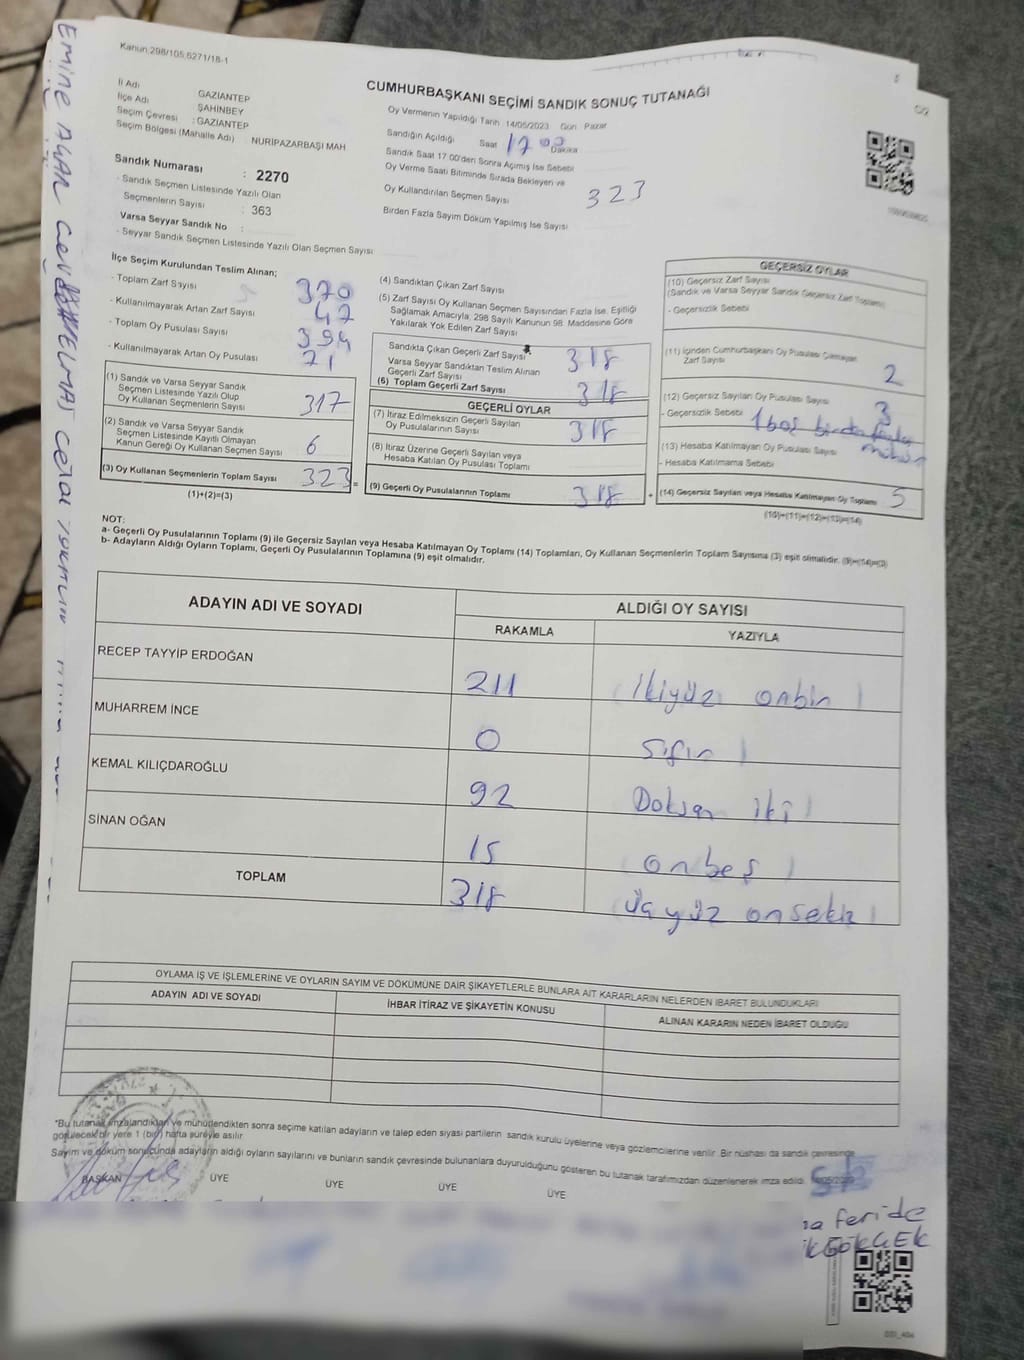 Kanun:298/105;6271/18-1
C/2
CUMHURBAŞKANI SEÇİMİ SANDIK SONUÇ TUTANAĞI
İl Adı : GAZİANTEP
İlçe Adı : ŞAHİNBEY
Seçim Çevresi : GAZİANTEP
Seçim Bölgesi (Mahalle Adı) : NURİPAZARBAŞI MAH
Sandık Numarası : 2270
- Sandık Seçmen Listesinde Yazılı Olan
Seçmenlerin Sayısı : 363
Varsa Seyyar Sandık No :
- Seyyar Sandık Seçmen Listesinde Yazılı Olan Seçmen Sayısı:
Oy Vermenin Yapıldığı Tarih 14/05/2023 Gün Pazar
Sandığın Açıldığı Saat 17 00 Dakika
Sandık Saat 17:00'den Sonra Açılmış İse Sebebi
Oy Verme Saati Bitiminde Sırada Bekleyen ve
Oy Kullandırılan Seçmen Sayısı 323
Birden Fazla Sayım Döküm Yapılmış İse Sayısı
İlçe Seçim Kurulundan Teslim Alınan;
- Toplam Zarf Sayısı 370
- Kullanılmayarak Artan Zarf Sayısı 47
- Toplam Oy Pusulası Sayısı 394
- Kullanılmayarak Artan Oy Pusulası 71
(1) Sandık ve Varsa Seyyar Sandık
Seçmen Listesinde Yazılı Olup
Oy Kullanan Seçmenlerin Sayısı 317
(2) Sandık ve Varsa Seyyar Sandık
Seçmen Listesinde Kayıtlı Olmayan
Kanun Gereği Oy Kullanan Seçmen Sayısı 6
(3) Oy Kullanan Seçmenlerin Toplam Sayısı 323 =
(1)+(2)=(3)
(4) Sandıktan Çıkan Zarf Sayısı
(5) Zarf Sayısı Oy Kullanan Seçmen Sayısından Fazla İse, Eşitliği
Sağlamak Amacıyla, 298 Sayılı Kanunun 98. Maddesine Göre
Yakılarak Yok Edilen Zarf Sayısı
Sandıkta Çıkan Geçerli Zarf Sayısı 318
Varsa Seyyar Sandıktan Teslim Alınan
Geçerli Zarf Sayısı
(6) Toplam Geçerli Zarf Sayısı 318
GEÇERLİ OYLAR
(7) İtiraz Edilmeksizin Geçerli Sayılan
Oy Pusulalarının Sayısı 318
(8) İtiraz Üzerine Geçerli Sayılan veya
Hesaba Katılan Oy Pusulası Toplamı
(9) Geçerli Oy Pusulalarının Toplamı 318 +
GEÇERSİZ OYLAR
(10) Geçersiz Zarf Sayısı
(Sandık ve Varsa Seyyar Sandık Geçersiz Zarf Toplamı)
- Geçersizlik Sebebi
(11) İçinden Cumhurbaşkanı Oy Pusulası Çıkmayan
Zarf Sayısı 2
(12) Geçersiz Sayılan Oy Pusulası Sayısı 3
- Geçersizlik Sebebi 1 boş birden fazla
mühür
(13) Hesaba Katılmayan Oy Pusulası Sayısı
- Hesaba Katılmama Sebebi
(14) Geçersiz Sayılan veya Hesaba Katılmayan Oy Toplamı 5
(10)+(11)+(12)+(13)=(14)
NOT:
a- Geçerli Oy Pusulalarının Toplamı (9) ile Geçersiz Sayılan veya Hesaba Katılmayan Oy Toplamı (14) Toplamları, Oy Kullanan Seçmenlerin Toplam Sayısına (3) eşit olmalıdır. (9)+(14)=(3)
b- Adayların Aldığı Oyların Toplamı, Geçerli Oy Pusulalarının Toplamına (9) eşit olmalıdır.
ADAYIN ADI VE SOYADI ALDIĞI OY SAYISI
RAKAMLA YAZIYLA
RECEP TAYYİP ERDOĞAN 211 İkiyüz onbir
MUHARREM İNCE 0 Sıfır
KEMAL KILIÇDAROĞLU 92 Doksan iki
SİNAN OĞAN 15 onbeş
TOPLAM 318 üçyüz onsekiz
OYLAMA İŞ VE İŞLEMLERİNE VE OYLARIN SAYIM VE DÖKÜMÜNE DAİR ŞİKAYETLERLE BUNLARA AİT KARARLARIN NELERDEN İBARET BULUNDUKLARI
ADAYIN ADI VE SOYADI İHBAR İTİRAZ VE ŞİKAYETİN KONUSU ALINAN KARARIN NEDEN İBARET OLDUĞU
*Bu tutanak imzalandıktan ve mühürlendikten sonra seçime katılan adayların ve talep eden siyasi partilerin sandık kurulu üyelerine veya gözlemcilerine verilir. Bir nüshası da sandık çevresinde
görülecek bir yere 1 (bir) hafta süreyle asılır.
Sayım ve döküm sonucunda adayların aldığı oyların sayılarını ve bunların sandık çevresinde bulunanlara duyurulduğunu gösteren bu tutanak tarafımızdan düzenlenerek imza edildi.
BAŞKAN ÜYE ÜYE ÜYE ÜYE
feride
GÖKÇEK